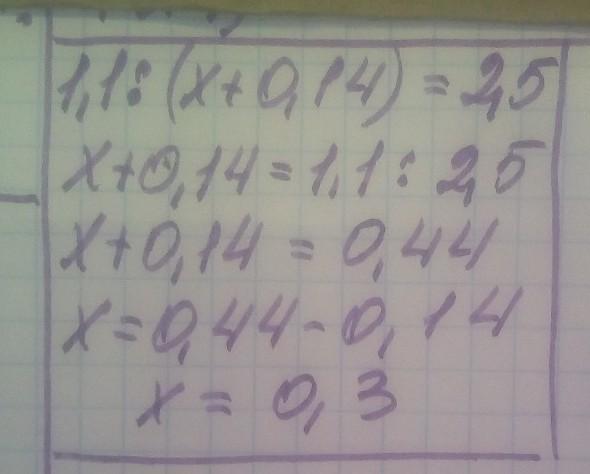 1,1:(x+0,14)=2,5
x+0,14=1,1:2,5
x+0,14=0,44
x=0,44-0,14
x=0,3